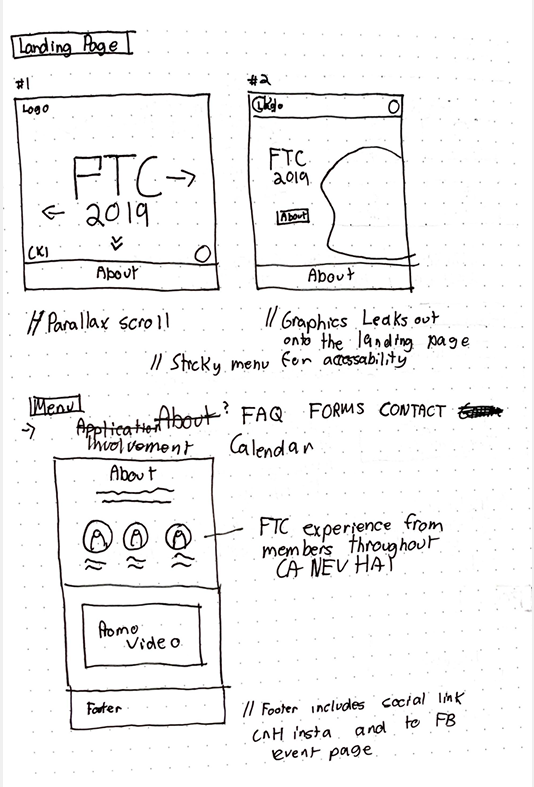 Landing Page
#1
#2
Logo
FTC
2019
CKI
About
FTC
2019
About
About
// Parallax scroll
// Graphics Leaks out
onto the landing page
// Sticky menu for accessability
Menu
Application About? FAQ FORMS CONTACT
Involvement Calendar
About
FTC experience from
members throughout
CA NEV HAY
Video
Footer
// Footer includes social link
CNH insta and to FB
event page